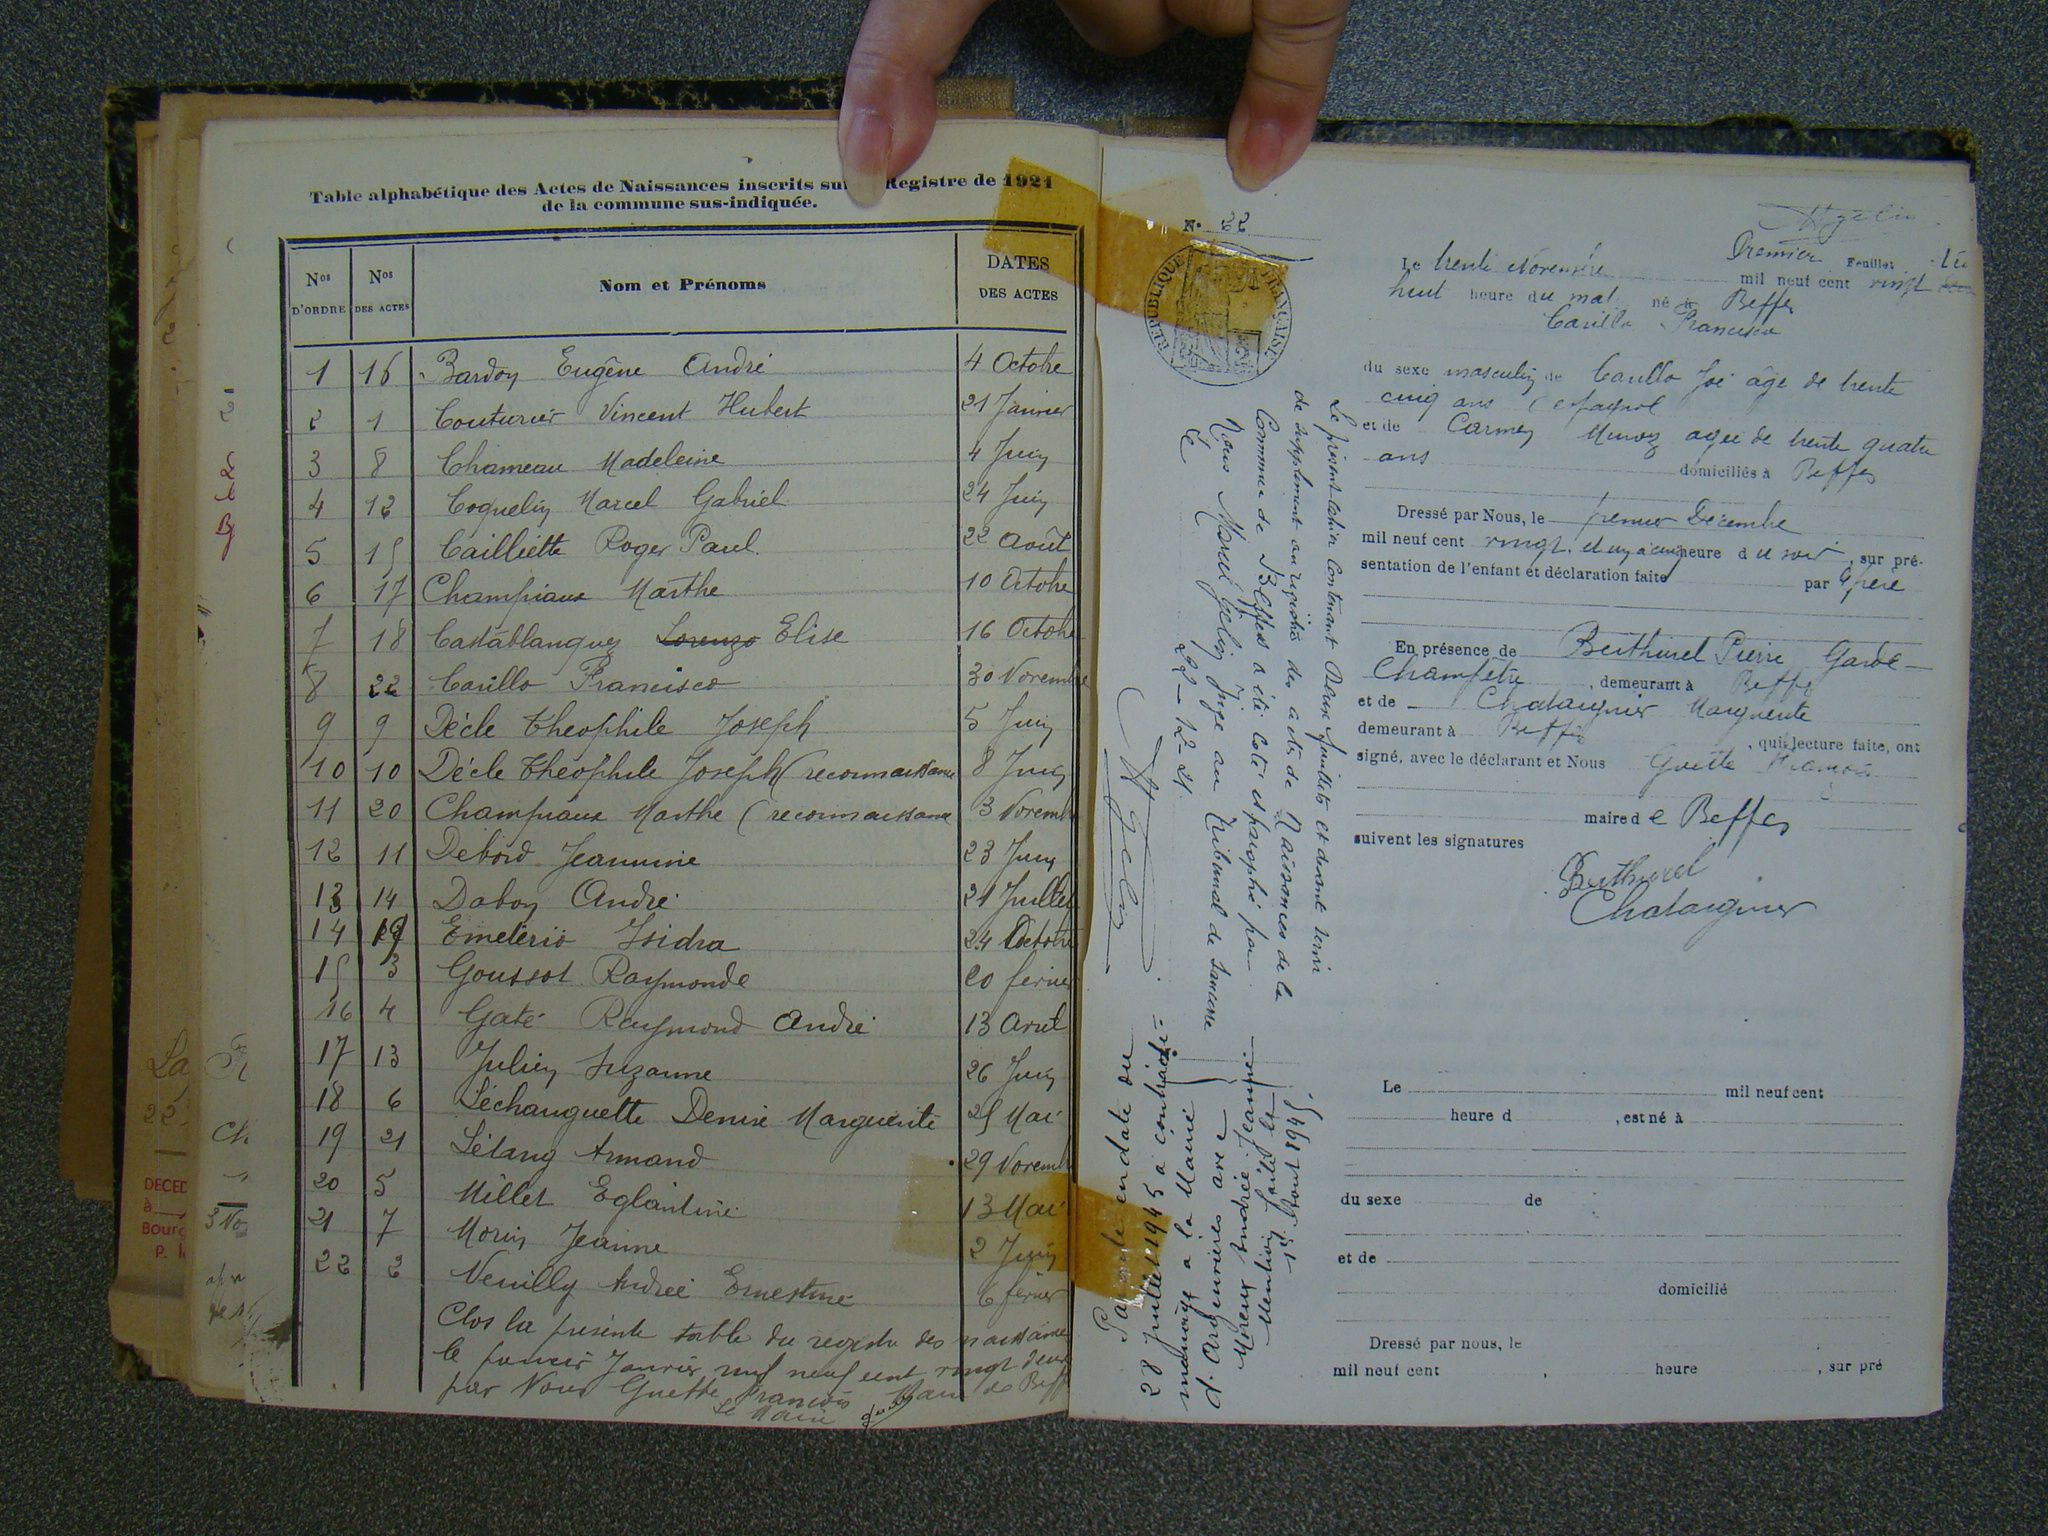 Table alphabétique des Actes de Naissances inscrits sur Registre de 1921
de la commune sus-indiquée.
Nos D'ORDRE Nos DES ACTES Nom et Prénoms DATES DES ACTES
1 16 Bardon Eugêne André 4 Octobre
2 1 Couturier Vincent Hubert 21 Janvier
3 8 Chameau Madeleine 4 Juin
4 12 Coquelin Marcel Gabriel 24 Juin
5 15 Cailliette Roger Paul 22 Août
6 17 Champiaux Marthe 10 Octobre
7 18 Castablanquez Lorenzo Elise 16 Octobre
8 22 Carillo Francisco 30 Novembre
9 9 Décle Théophile Joseph 5 Juin
10 10 Décle Théophile Joseph (reconnaissance 8 Juin
11 20 Champiaux Marthe (reconnaissance 3 Novemb
12 11 Debord Jeannine 23 Juin
13 14 Dabon André 21 Juillet
14 19 Emeterio Isidra 24 Octobre
15 3 Goussot Raymonde 20 février
16 4 Gaté Raymond André 13 Avril
17 13 Julien Suzanne 26 Juin
18 6 Léchauguette Denise Marguerite 25 Mai
19 21 Létang Armand 29 Novemb
20 5 Millet Eglantine 13 Mai
21 7 Morin Jeanne 2 Juin
22 2 Neuilly Andrée Ernestine 6 février
Clos la présente table du registre des naissances
le premier Janvier mil neuf cent vingt deux
par Nous Guette François Maire de Beff
Le Maire
N° 22
RÉPUBLIQUE FRANÇAISE
Premier Feuillet
Le trente Novembre mil neuf cent vingt
huit heure du mat né à Beffes
Carillo Francisco
du sexe masculin de Carillo José âgé de trente
cinq ans (espagnol
et de Carmen Munoz agée de trente quatre
ans domiciliés à Beffes
Dressé par Nous, le premier Décembre
mil neuf cent vingt et un à cinq heure du soir, sur pré-
sentation de l'enfant et déclaration faite par le père
En présence de Berthurel Pierre Garde
Champêtre, demeurant à Beffes
et de Chataignier Marguerite
demeurant à Beffes, qui lecture faite, ont
signé, avec le déclarant et Nous Guette François
maire de Beffes
suivent les signatures
Berthurel
Chataignier
Le present cahier contenant Deux feuillets et devant servir
de supplement au registre des actes de Naissances de la
Commune de Beffes a été coté et paraphé par
Nous Marcel Gelin Juge au Tribunal de Sancerre
Le 22-12-21.
Par acte en date du
28 juillet 1945 a contracté
mariage à la Mairie
d'Argenvières avec
Moreux Andrée Jeannine
Mention faite le
1er Août 1945
Le mil neuf cent
heure d , est né à
du sexe de
et de
domicilié
Dressé par nous, le
mil neuf cent , heure , sur pré